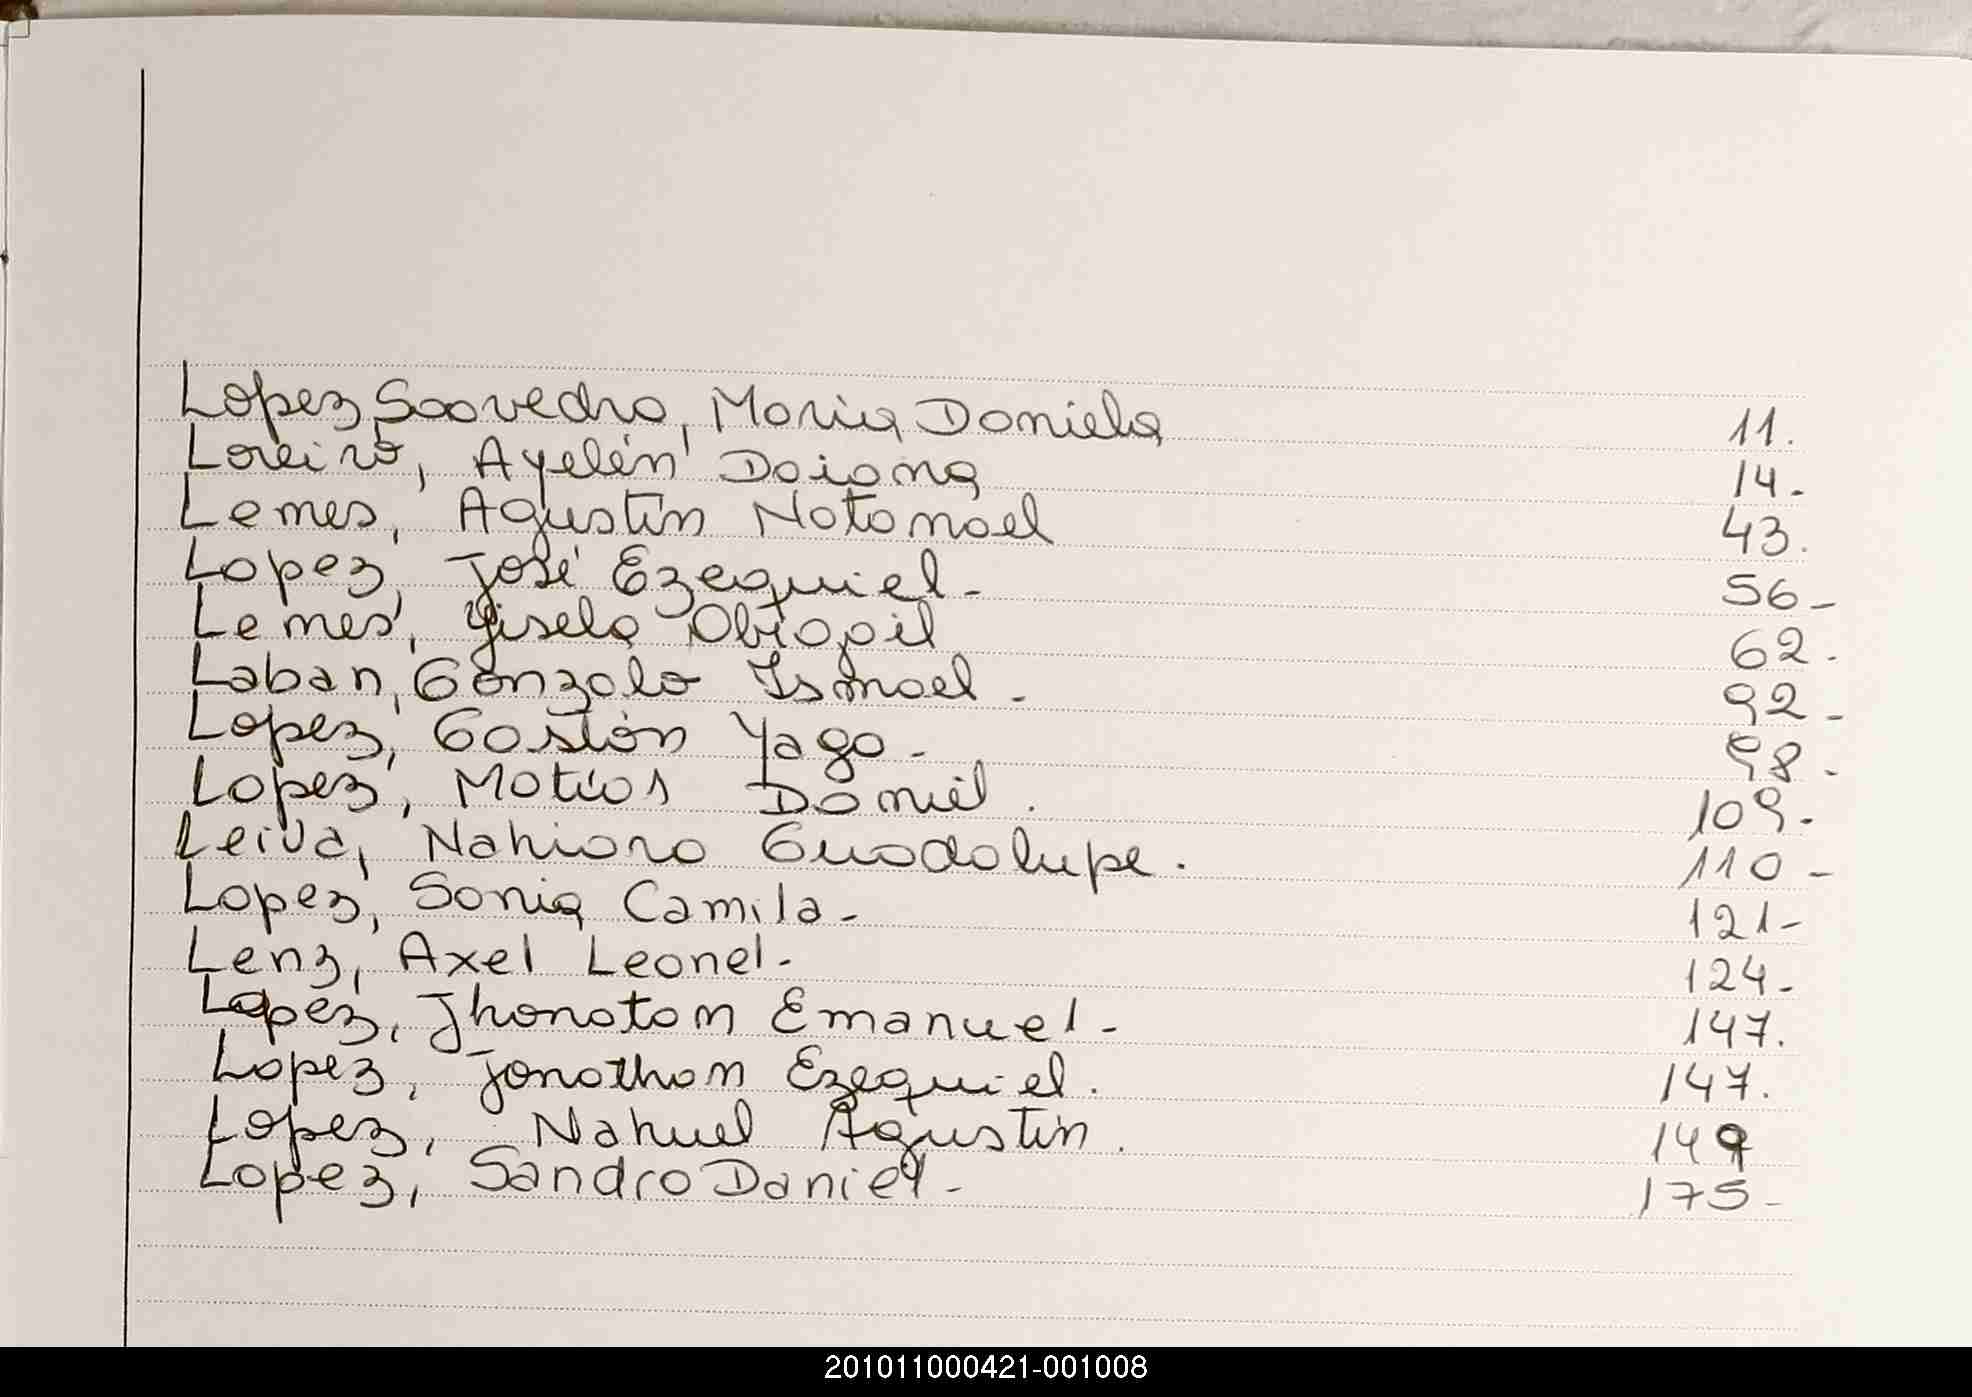 Lopez Saavedra, Maria Daniela 11.
Loreiro, Ayelén Daiana 14-
Lemes, Agustin Natanael 43.
Lopez, José Ezequiel- 56-
Lemes, Gisela Abigail 62-
Laban, Gonzalo Ismael- 92-
Lopez, Gastón Yago- 98-
Lopez, Matías Daniel. 109-
Leiva, Nahiara Guadalupe. 110-
Lopez, Sonia Camila- 121-
Lenz, Axel Leonel- 124-
Lopez, Jhonatan Emanuel- 147.
Lopez, Jonathan Ezequiel. 147.
Lopez, Nahuel Agustin. 149
Lopez, Sandro Daniel- 175-
201011000421-001008